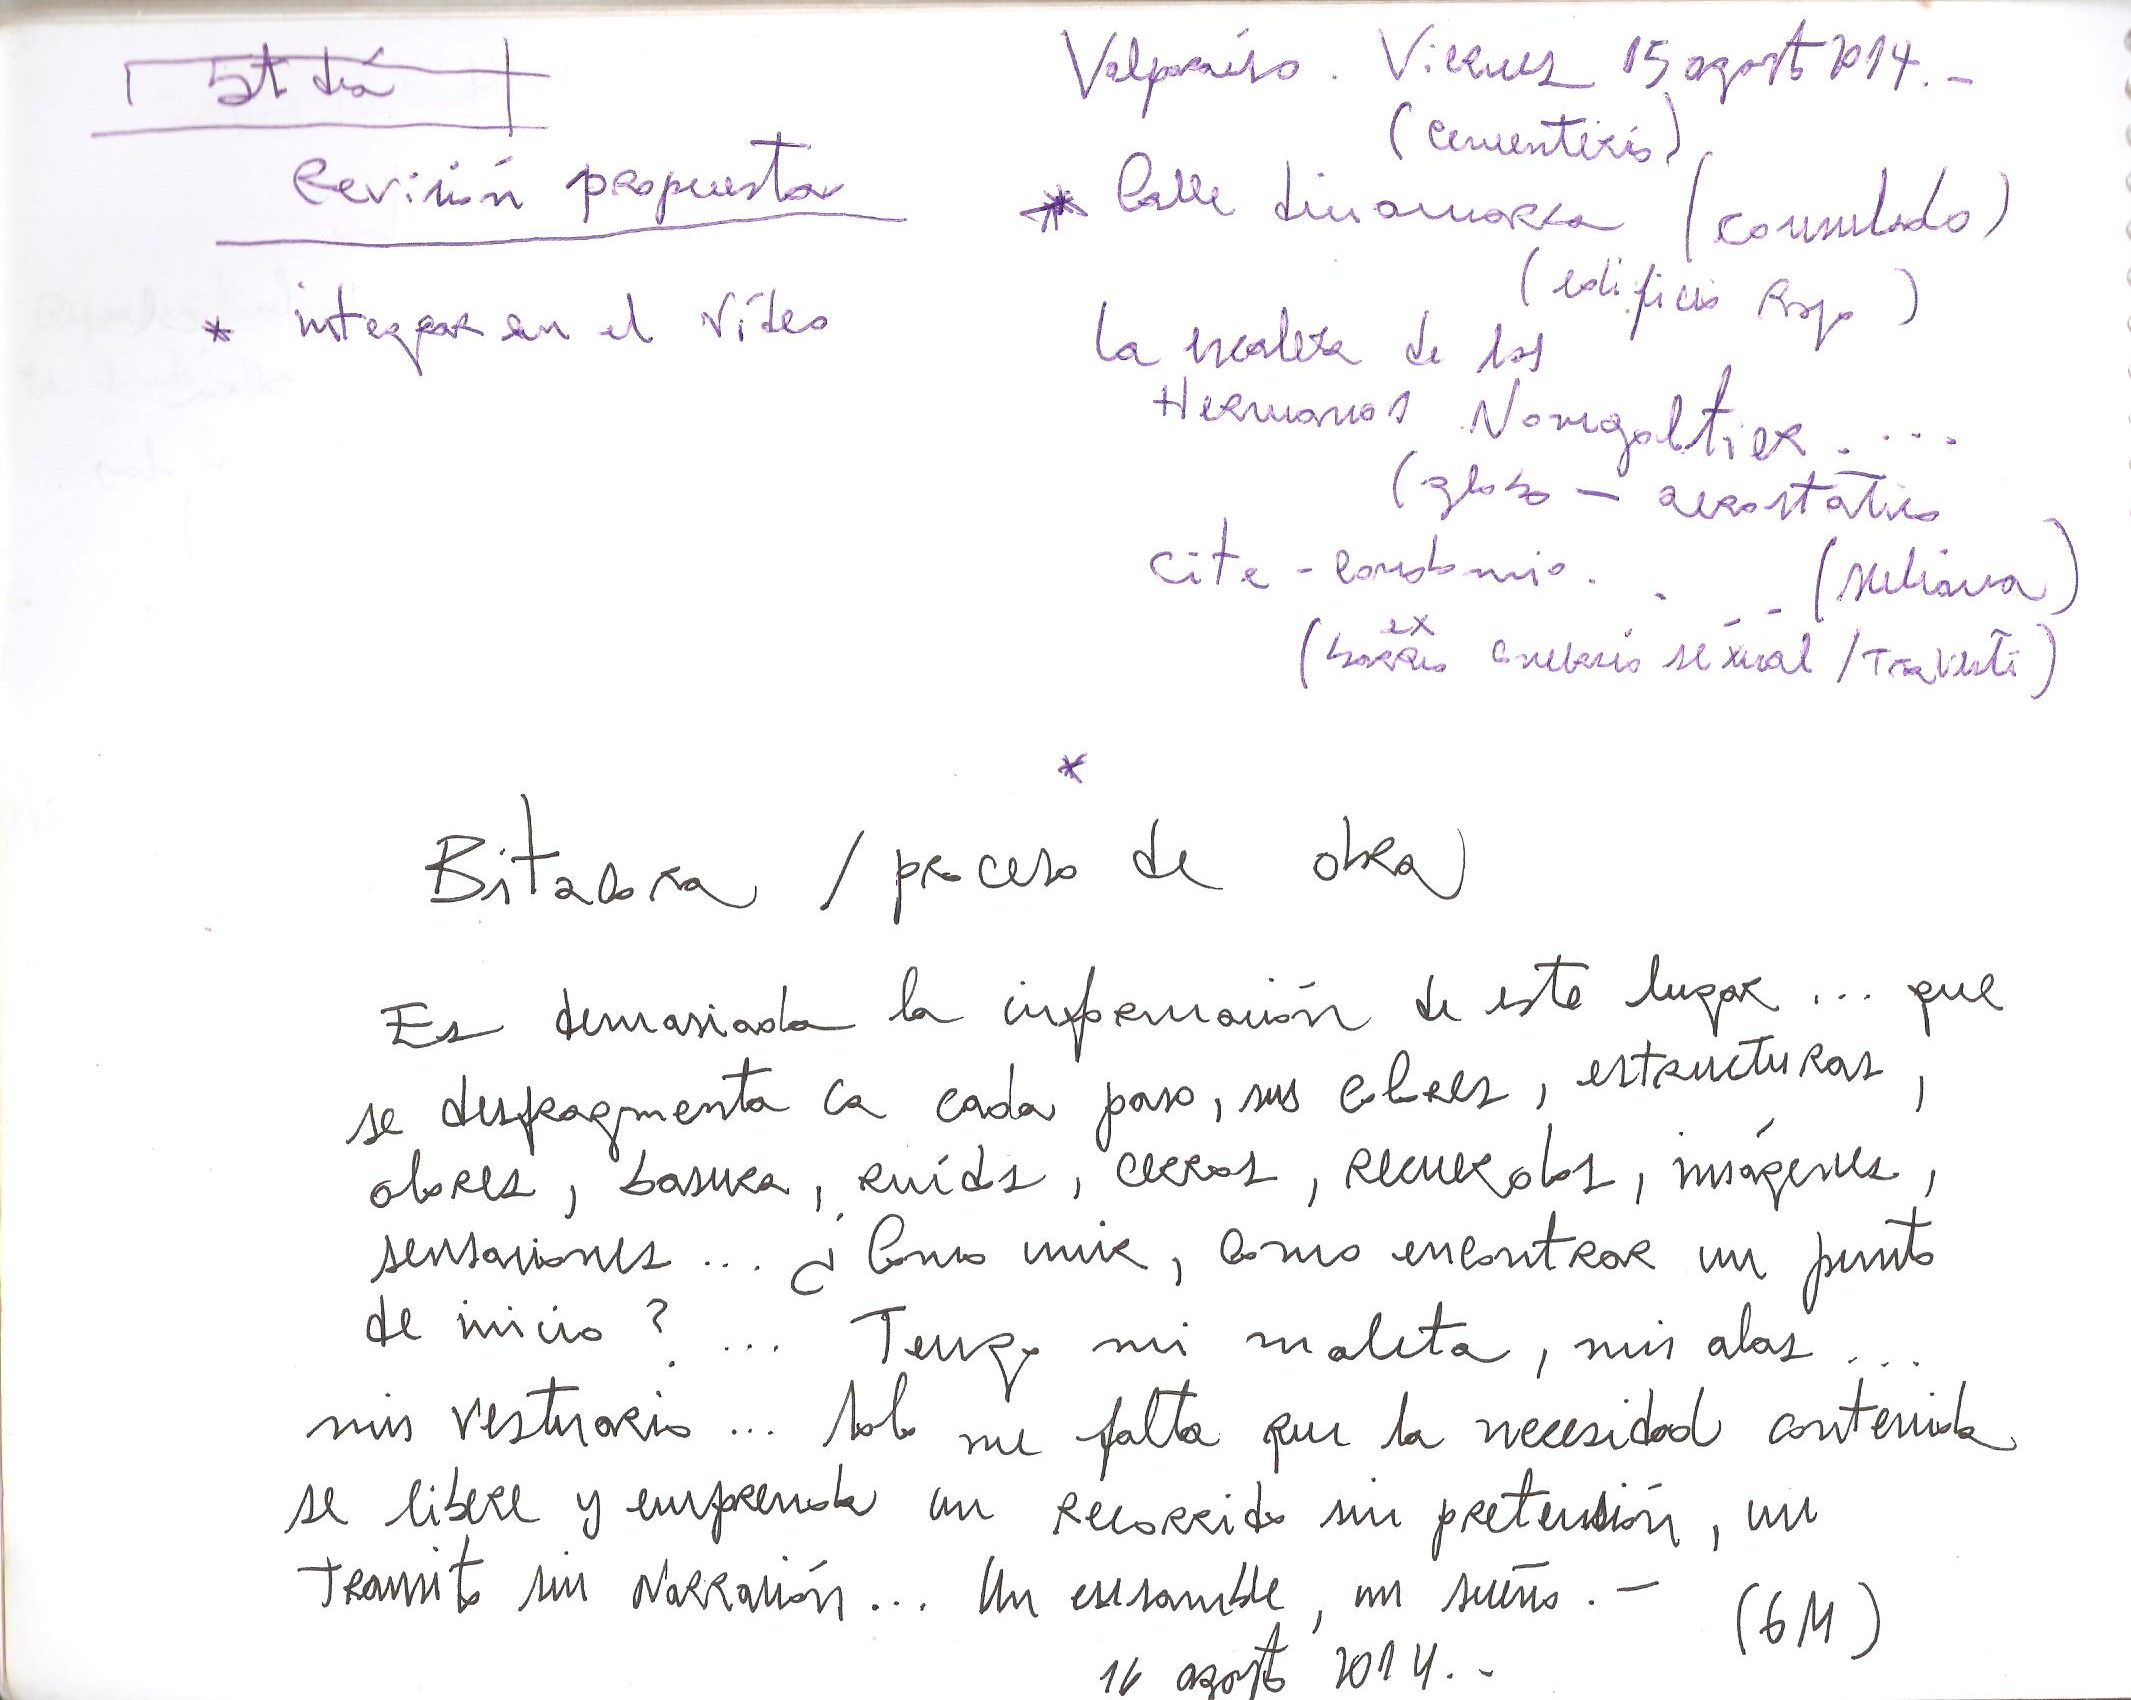 5t día
Revisión propuesta
* integrar en el vídeo
Valparaíso. Viernes 15 agosto 2014.-
(cementerio)
* Calle dinamarca (consulado)
(edificio Rojo)
la escalera de los
Hermanos ....
(globo - aerostático
cite - condominio. . . - (
(ex barrio comercio sexual / Travesti)
*
Bitacora / proceso de obra
Es demasiada la información de este lugar ... que
se desfragmenta a cada paso, sus colores, estructuras,
olores, basura, ruídos, cerros, recuerdos, imágenes,
sensaciones ... ¿Como unir, como encontrar un punto
de inicio? ... Tengo mi maleta, mis alas ...
mis vestuario ... solo me falta que la necesidad contenida
se libere y emprenda un recorrido sin pretensión, un
Transito sin Narración ... Un ensamble, un sueño. -
(GM)
16 agosto 2014. -